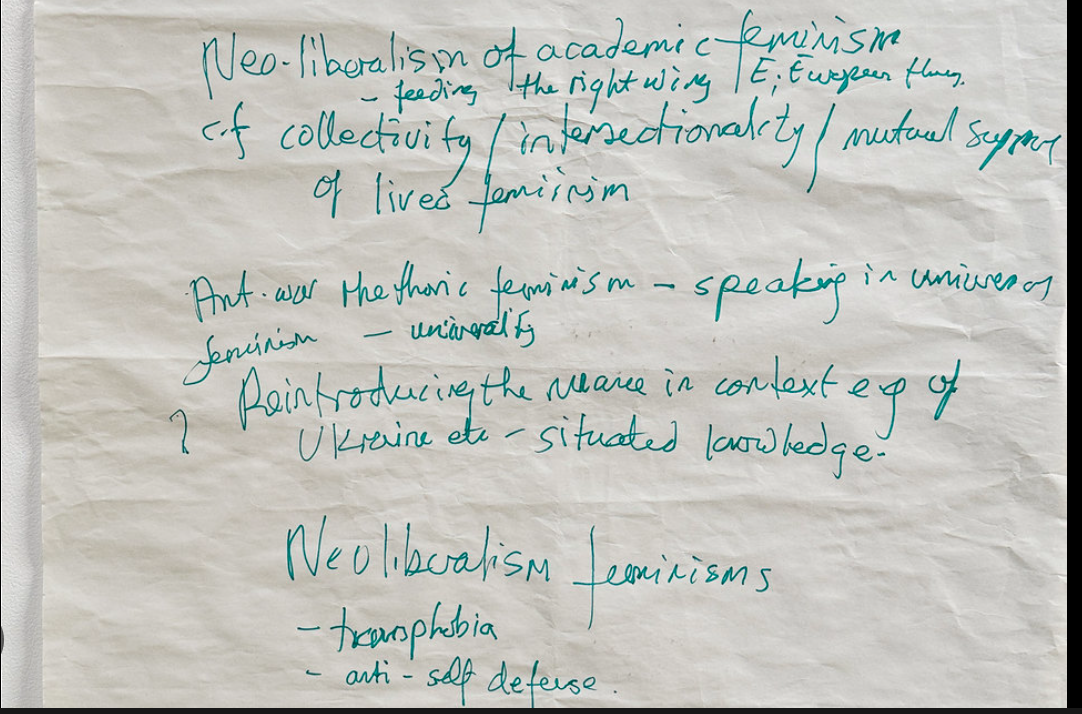 Neo-liberalism of academic feminism
- feeding the right wing / E, European
cf collectivity / intersectionality / mutual support
of lived feminism
Anti-war rhethoric feminism - speaking in
feminism - univerality
Reintroducing the nuance in context e g of
? Ukraine etc - situated knowledge.
Neoliberalism feminisms
- transphobia
- anti - self defense.